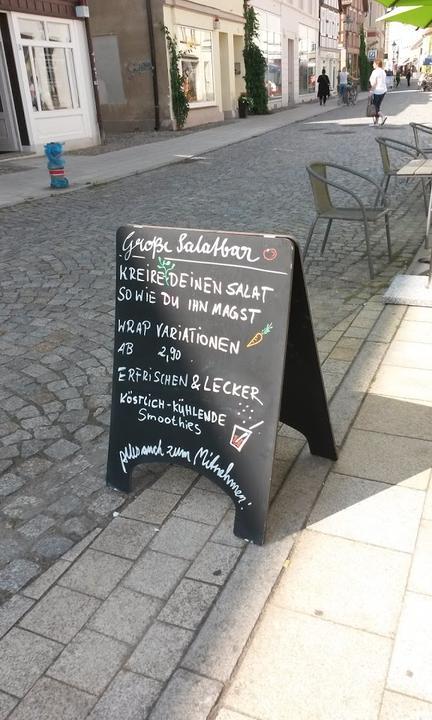 Große Salatbar
KREIRE DEINEN SALAT
SO WIE DU IHN MAGST
WRAP VARIATIONEN
AB 2,90
ERFRISCHEN & LECKER
KÖSTLICH-KÜHLENDE
Smoothies
alles auch zum Mitnehmen!